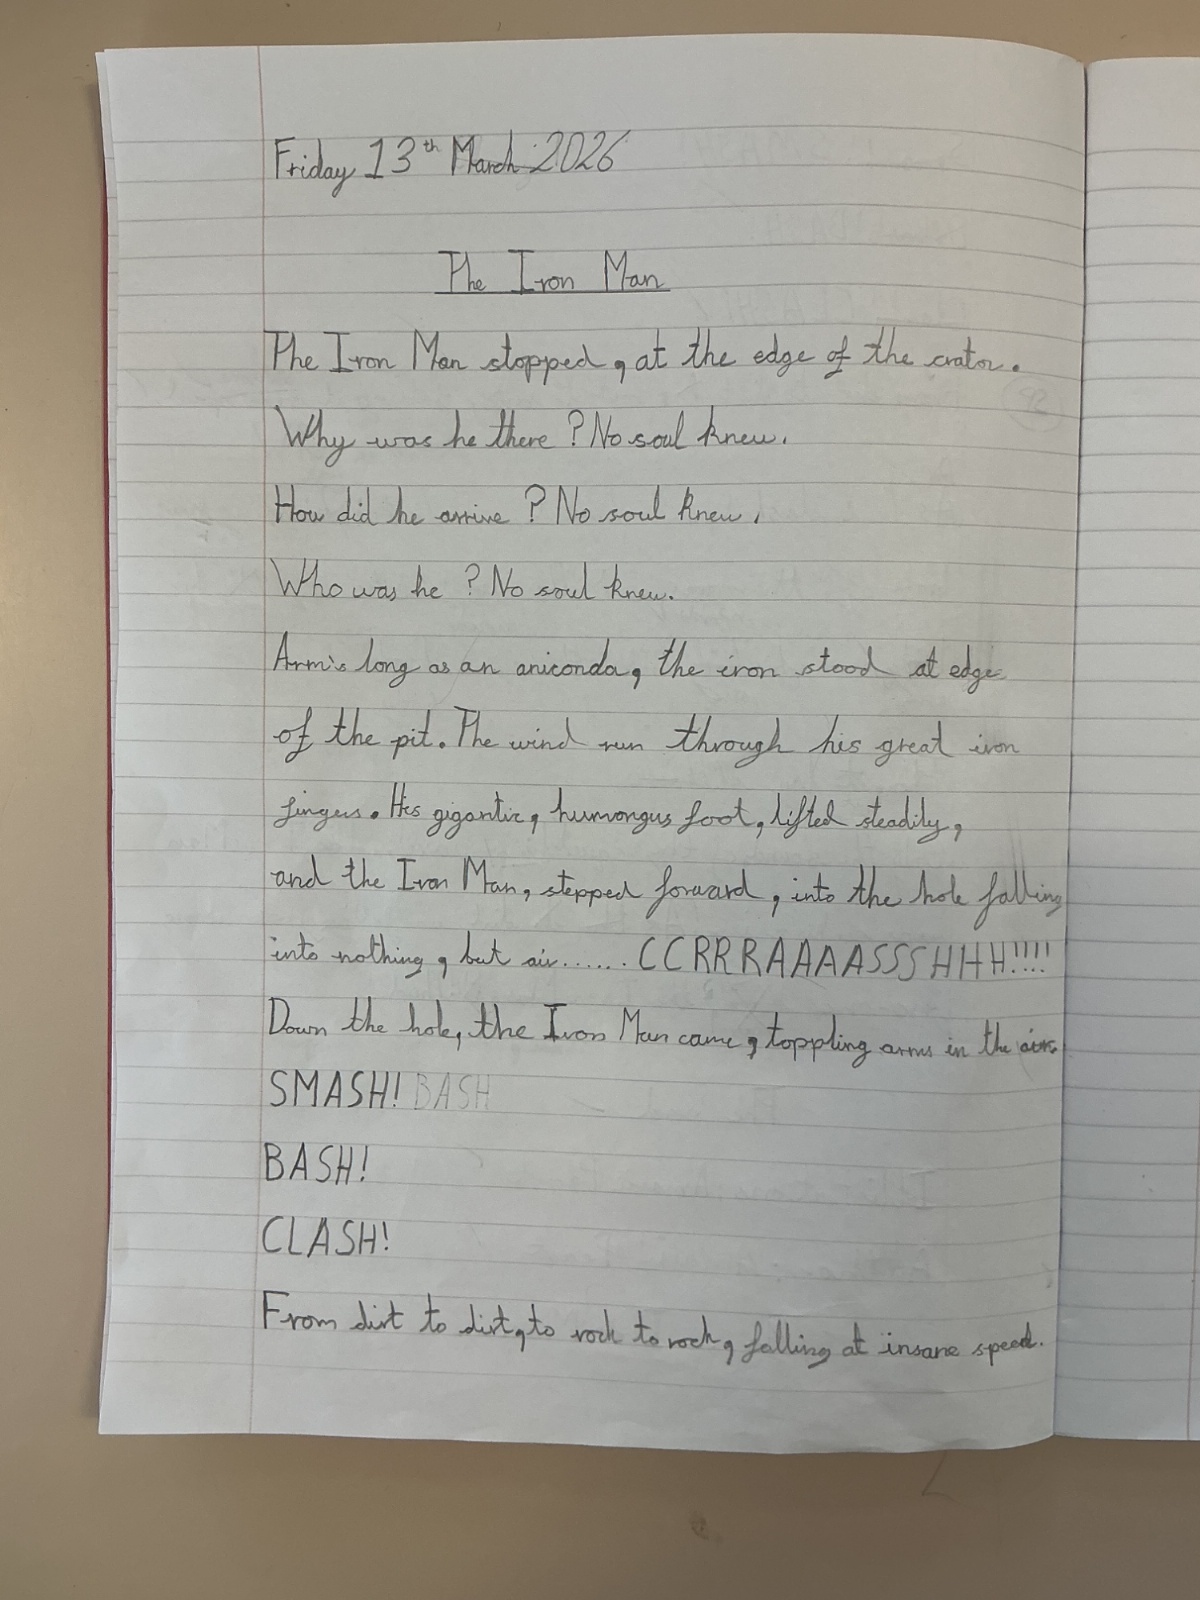 Friday 13th March 2026
The Iron Man
The Iron Man stopped, at the edge of the crator.
Why was he there? No soul knew.
How did he arrive? No soul knew.
Who was he? No soul knew.
Arm's long as an aniconda, the iron stood at edge
of the pit. The wind run through his great iron
fingers. His gigantic, humongus foot, lifted steadily,
and the Iron Man, stepped forward, into the hole falling
into nothing, but air...... CCRRRAAAASSSHHH!!!!
Down the hole, the Iron Man came, toppling arms in the air.
SMASH! BASH
BASH!
CLASH!
From dirt to dirt, to rock to rock, falling at insane speed.